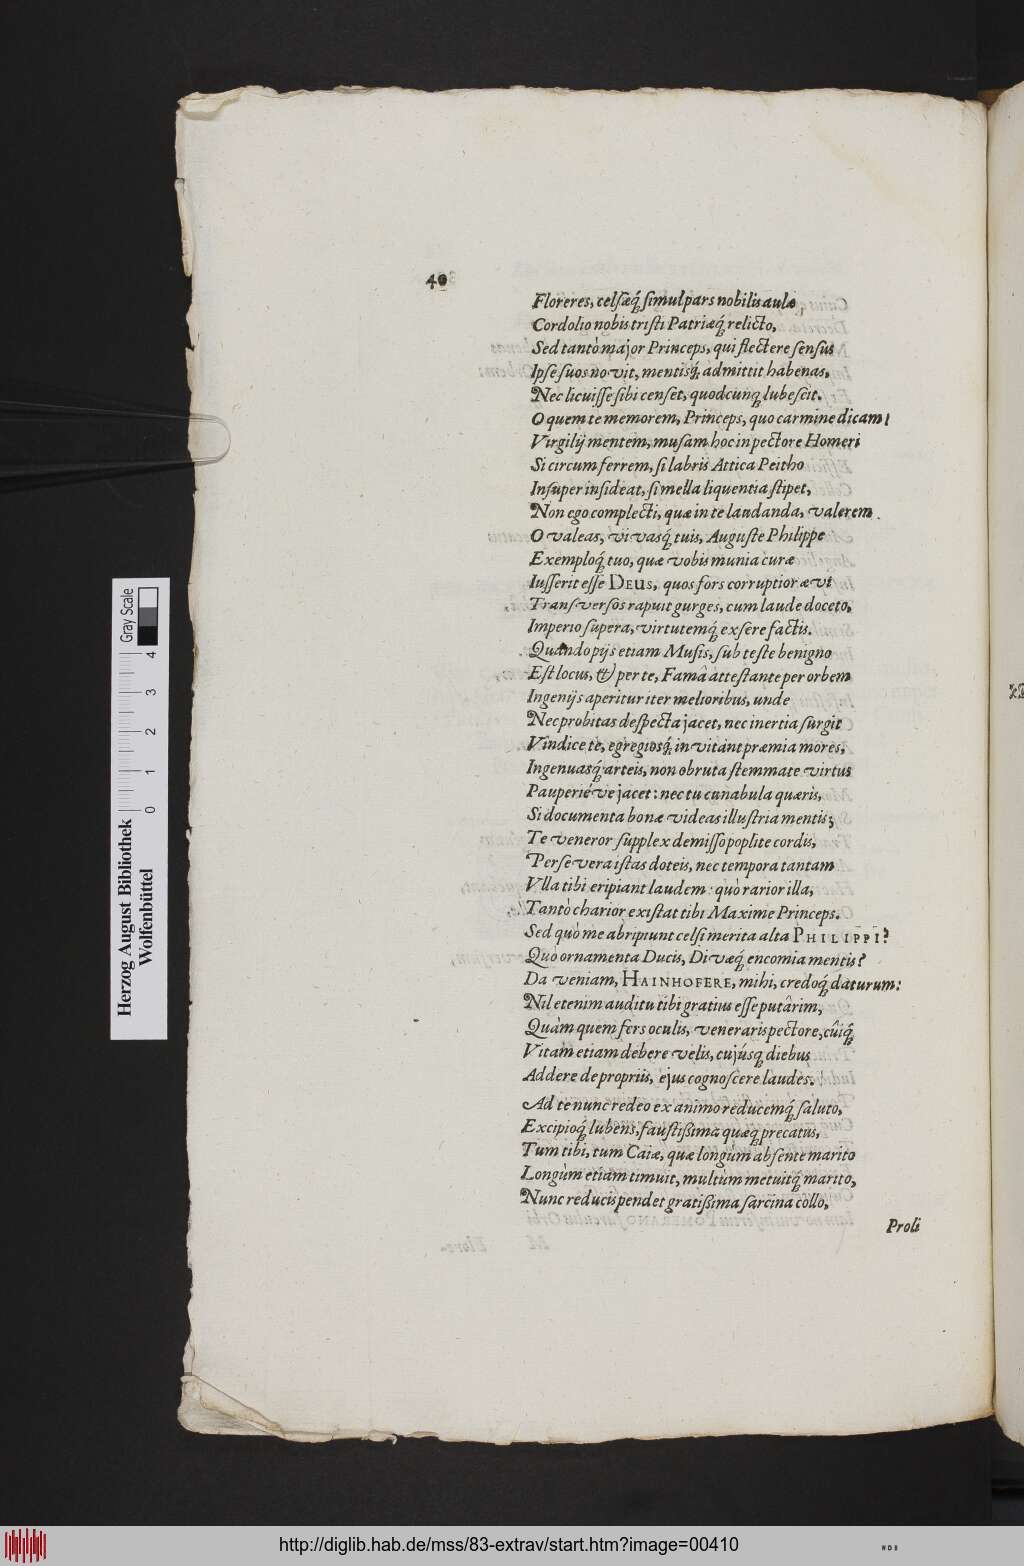 40
Floreres, celsæq́; simul pars nobilis aulæ,
Cordolio nobis tristi Patriæq́; relicto,
Sed tantò major Princeps, qui flectere sensus
Ipse suos novit, mentisq́; admittit habenas,
Nec licuisse sibi censet, quodcunq; lubescit.
O quem te memorem, Princeps, quo carmine dicam!
Virgilij mentem, musam hoc in pectore Homeri
Si circumferrem, si labris Attica Peitho
Insuper insideat, si mella liquentia stipet,
Non ego complecti, quæ in te laudanda, valerem.
O valeas, vivasq́; tuis, Auguste Philippe
Exemploq́; tuo, quæ vobis munia curæ
Iusserit esse DEUS, quos fors corruptior ævi
Transversos rapuit gurges, cum laude doceto,
Imperio supera, virtutemq́; exsere factis.
Quando pijs etiam Musis, sub teste benigno
Est locus, & per te, Famâ attestante per orbem
Ingenijs aperitur iter melioribus, unde
Nec probitas despecta jacet, nec inertia surgit
Vindice te, egregiosq́; invitant præmia mores,
Ingenuasq́; arteis, non obruta stemmate virtus
Pauperiéve jacet: nec tu cunabula quæris,
Si documenta bonæ videas illustria mentis;
Te veneror supplex demisso poplite cordis,
Persevera istas doteis, nec tempora tantam
Vlla tibi eripiant laudem: quò rarior illa,
Tantò charior existat tibi Maxime Princeps.
Sed quò me abripiunt celsi merita alta PHILIPPI?
Quò ornamenta Ducis, Divæq́; encomia mentis?
Da veniam, HAINHOFERE, mihi, credoq́; daturum:
Nil etenim auditu tibi gratius esse putârim,
Quàm quem fers oculis, veneraris pectore, cûiq́;
Vitam etiam debere velis, cujúsq; diebus
Addere de propriis, ejus cognoscere laudes.
Ad te nunc redeo ex animo reducemq́; saluto,
Excipioq́; lubens, faustißima quæq; precatus,
Tum tibi, tum Caiæ, quæ longùm absente marito
Longùm etiam timuit, multùm metuitq́; marito,
Nunc reducis pendet gratißima sarcina collo,
Proli
Herzog August Bibliothek
Wolfenbüttel
Gray Scale
0 1 2 3 4
http://diglib.hab.de/mss/83-extrav/start.htm?image=00410